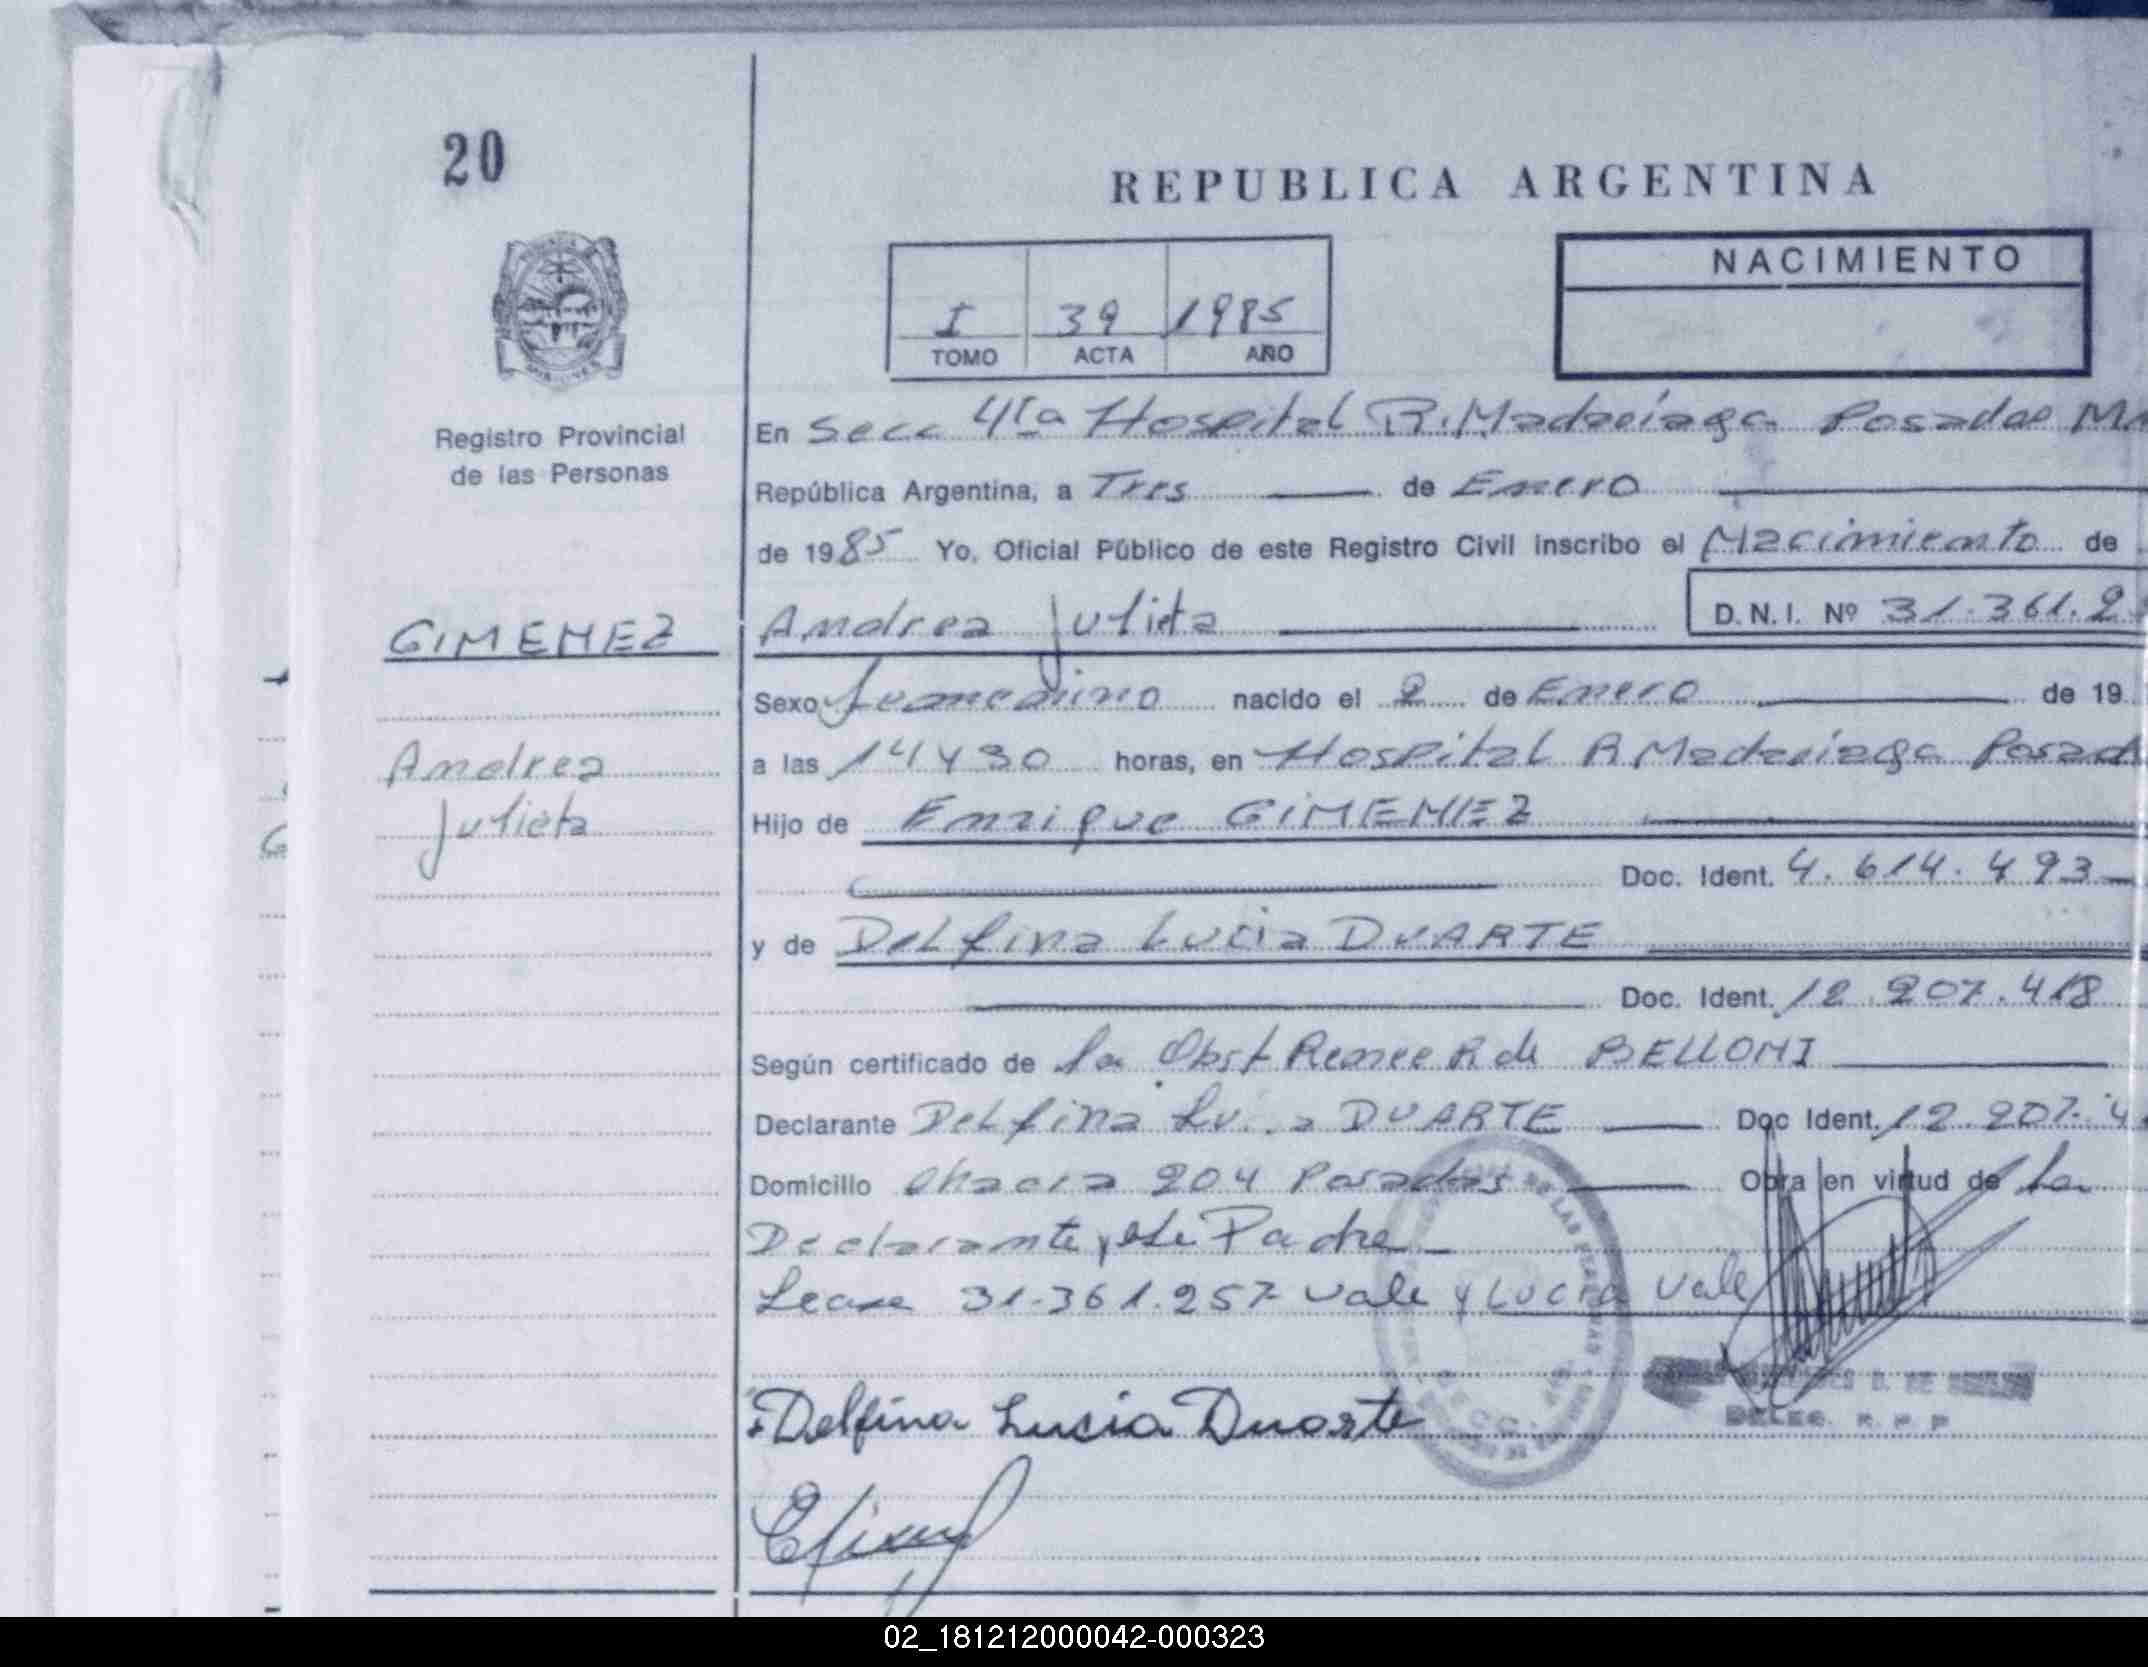 20
REPUBLICA ARGENTINA
NACIMIENTO
I 39 1985
TOMO ACTA AÑO
Registro Provincial
de las Personas
En Secc 4ta Hospital R. Madariaga Posadas
República Argentina, a Tres de Enero
de 1985 Yo, Oficial Público de este Registro Civil inscribo el Nacimiento de
GIMENEZ
Andrea Julieta
D. N. I. Nº 31.361.2
Sexo femenino nacido el 2 de Enero de 19
Andrea
Julieta
a las 14 y 30 horas, en Hospital R Madariaga Posad
Hijo de Enrique GIMENEZ
Doc. Ident. 4.614.493
y de Delfina Lucia DUARTE
Doc. Ident. 12.207.418
Según certificado de la Obst Renee R de BELLONI
Declarante Delfina DUARTE Doc Ident. 12.207.4
Domicilio Chacra 204 Posadas Obra en virtud de la
Declarante y el Padre
Lease 31.361.257 vale y Lucia vale
Delfina Lucia Duarte
DELEG. R. P. P.
02_181212000042-000323